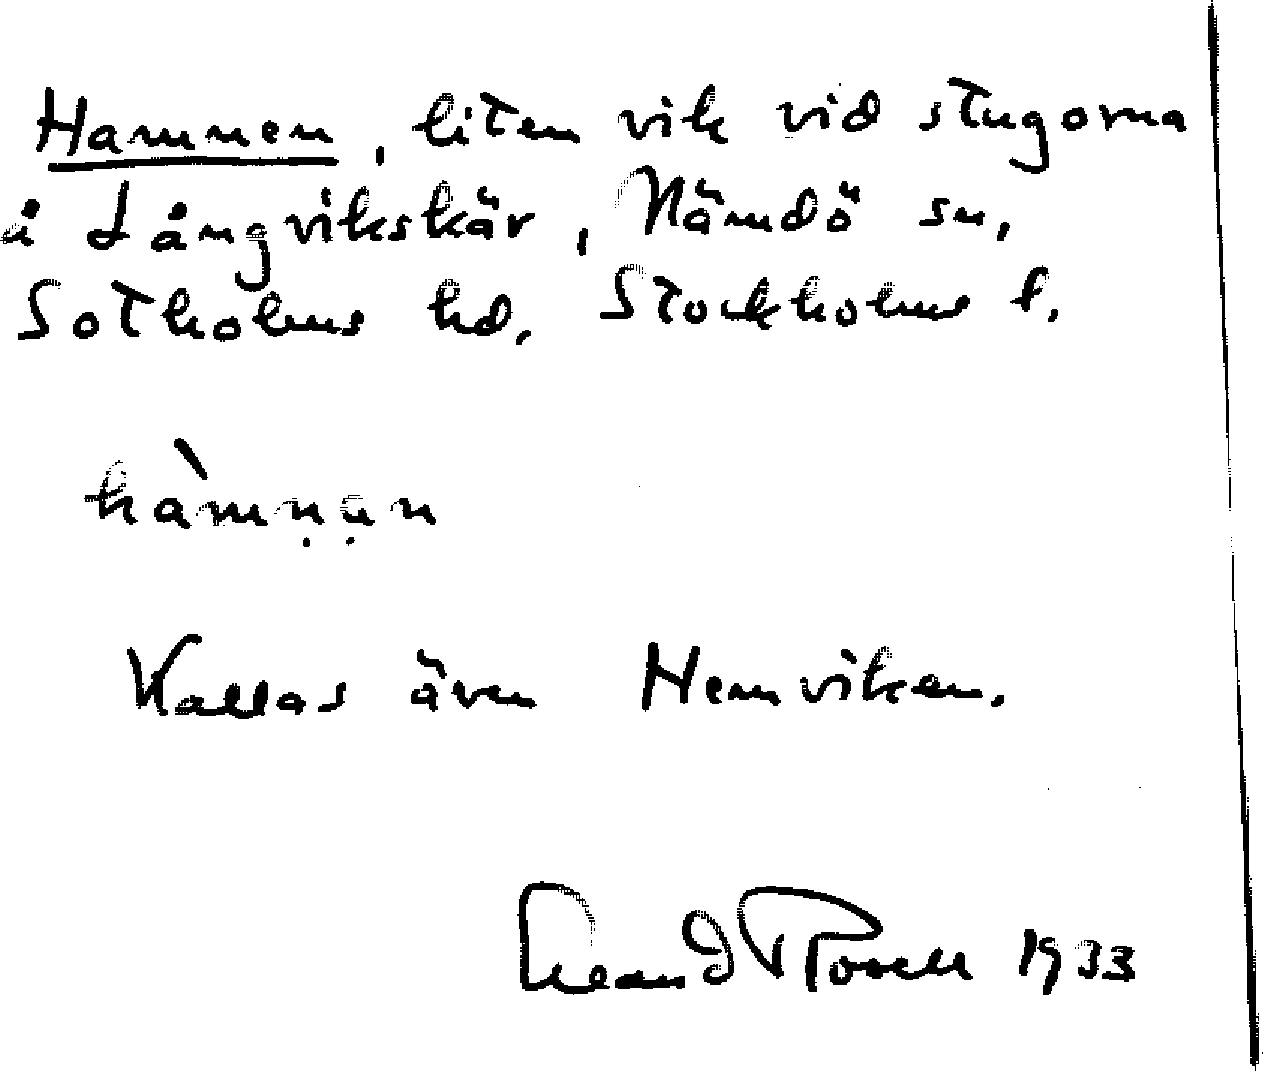 Hamnen, liten vik vid stugorna
å Långvikskär, Nämdö sn,
Sotholms hd. Stockholms l.
hàmṇạn
Kallas även Hemviken.
1933